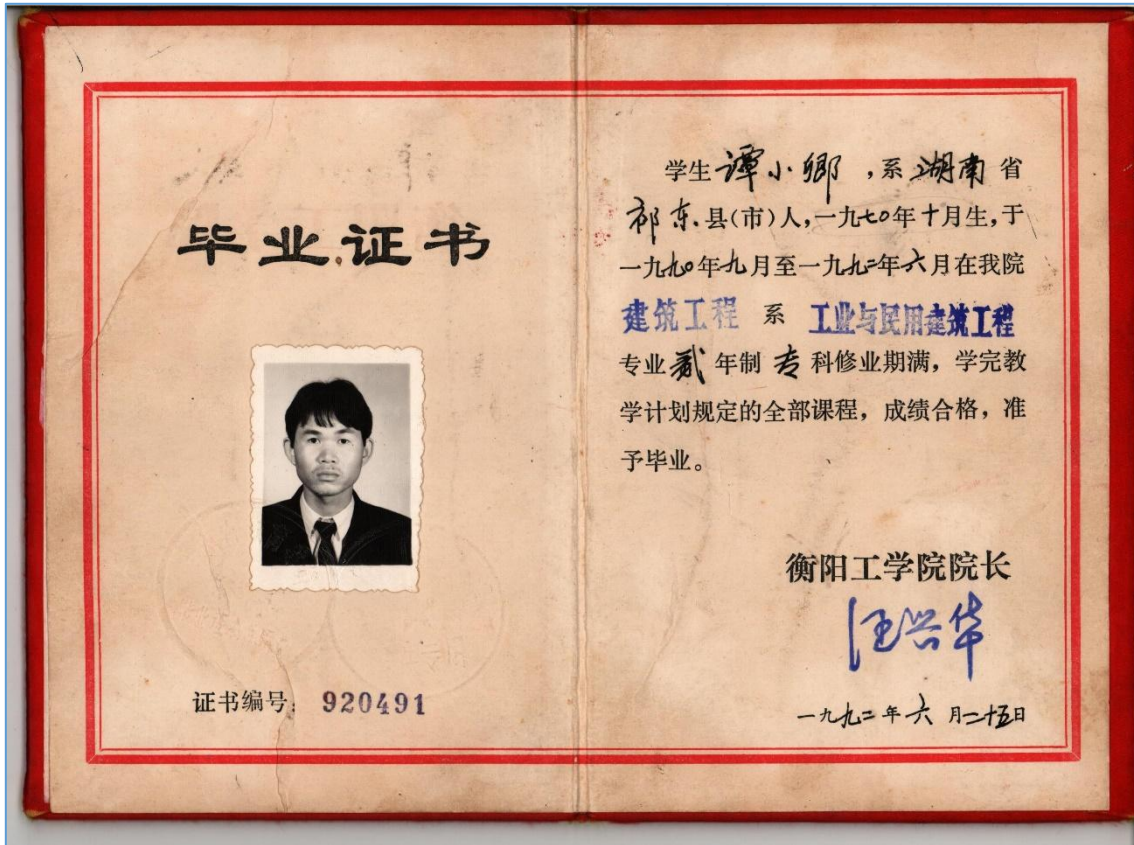 毕业证书
证书编号: 920491
学生谭小乡,系湖南省
祁东县(市)人,一九七०年十月生,于
一九九०年九月至一九九二年六月在我院
建筑工程 系 工业与民用建筑工程
专业贰年制专科修业期满,学完教
学计划规定的全部课程,成绩合格,准
予毕业。
衡阳工学院院长
汪兴华
一九九二年六月二十五日